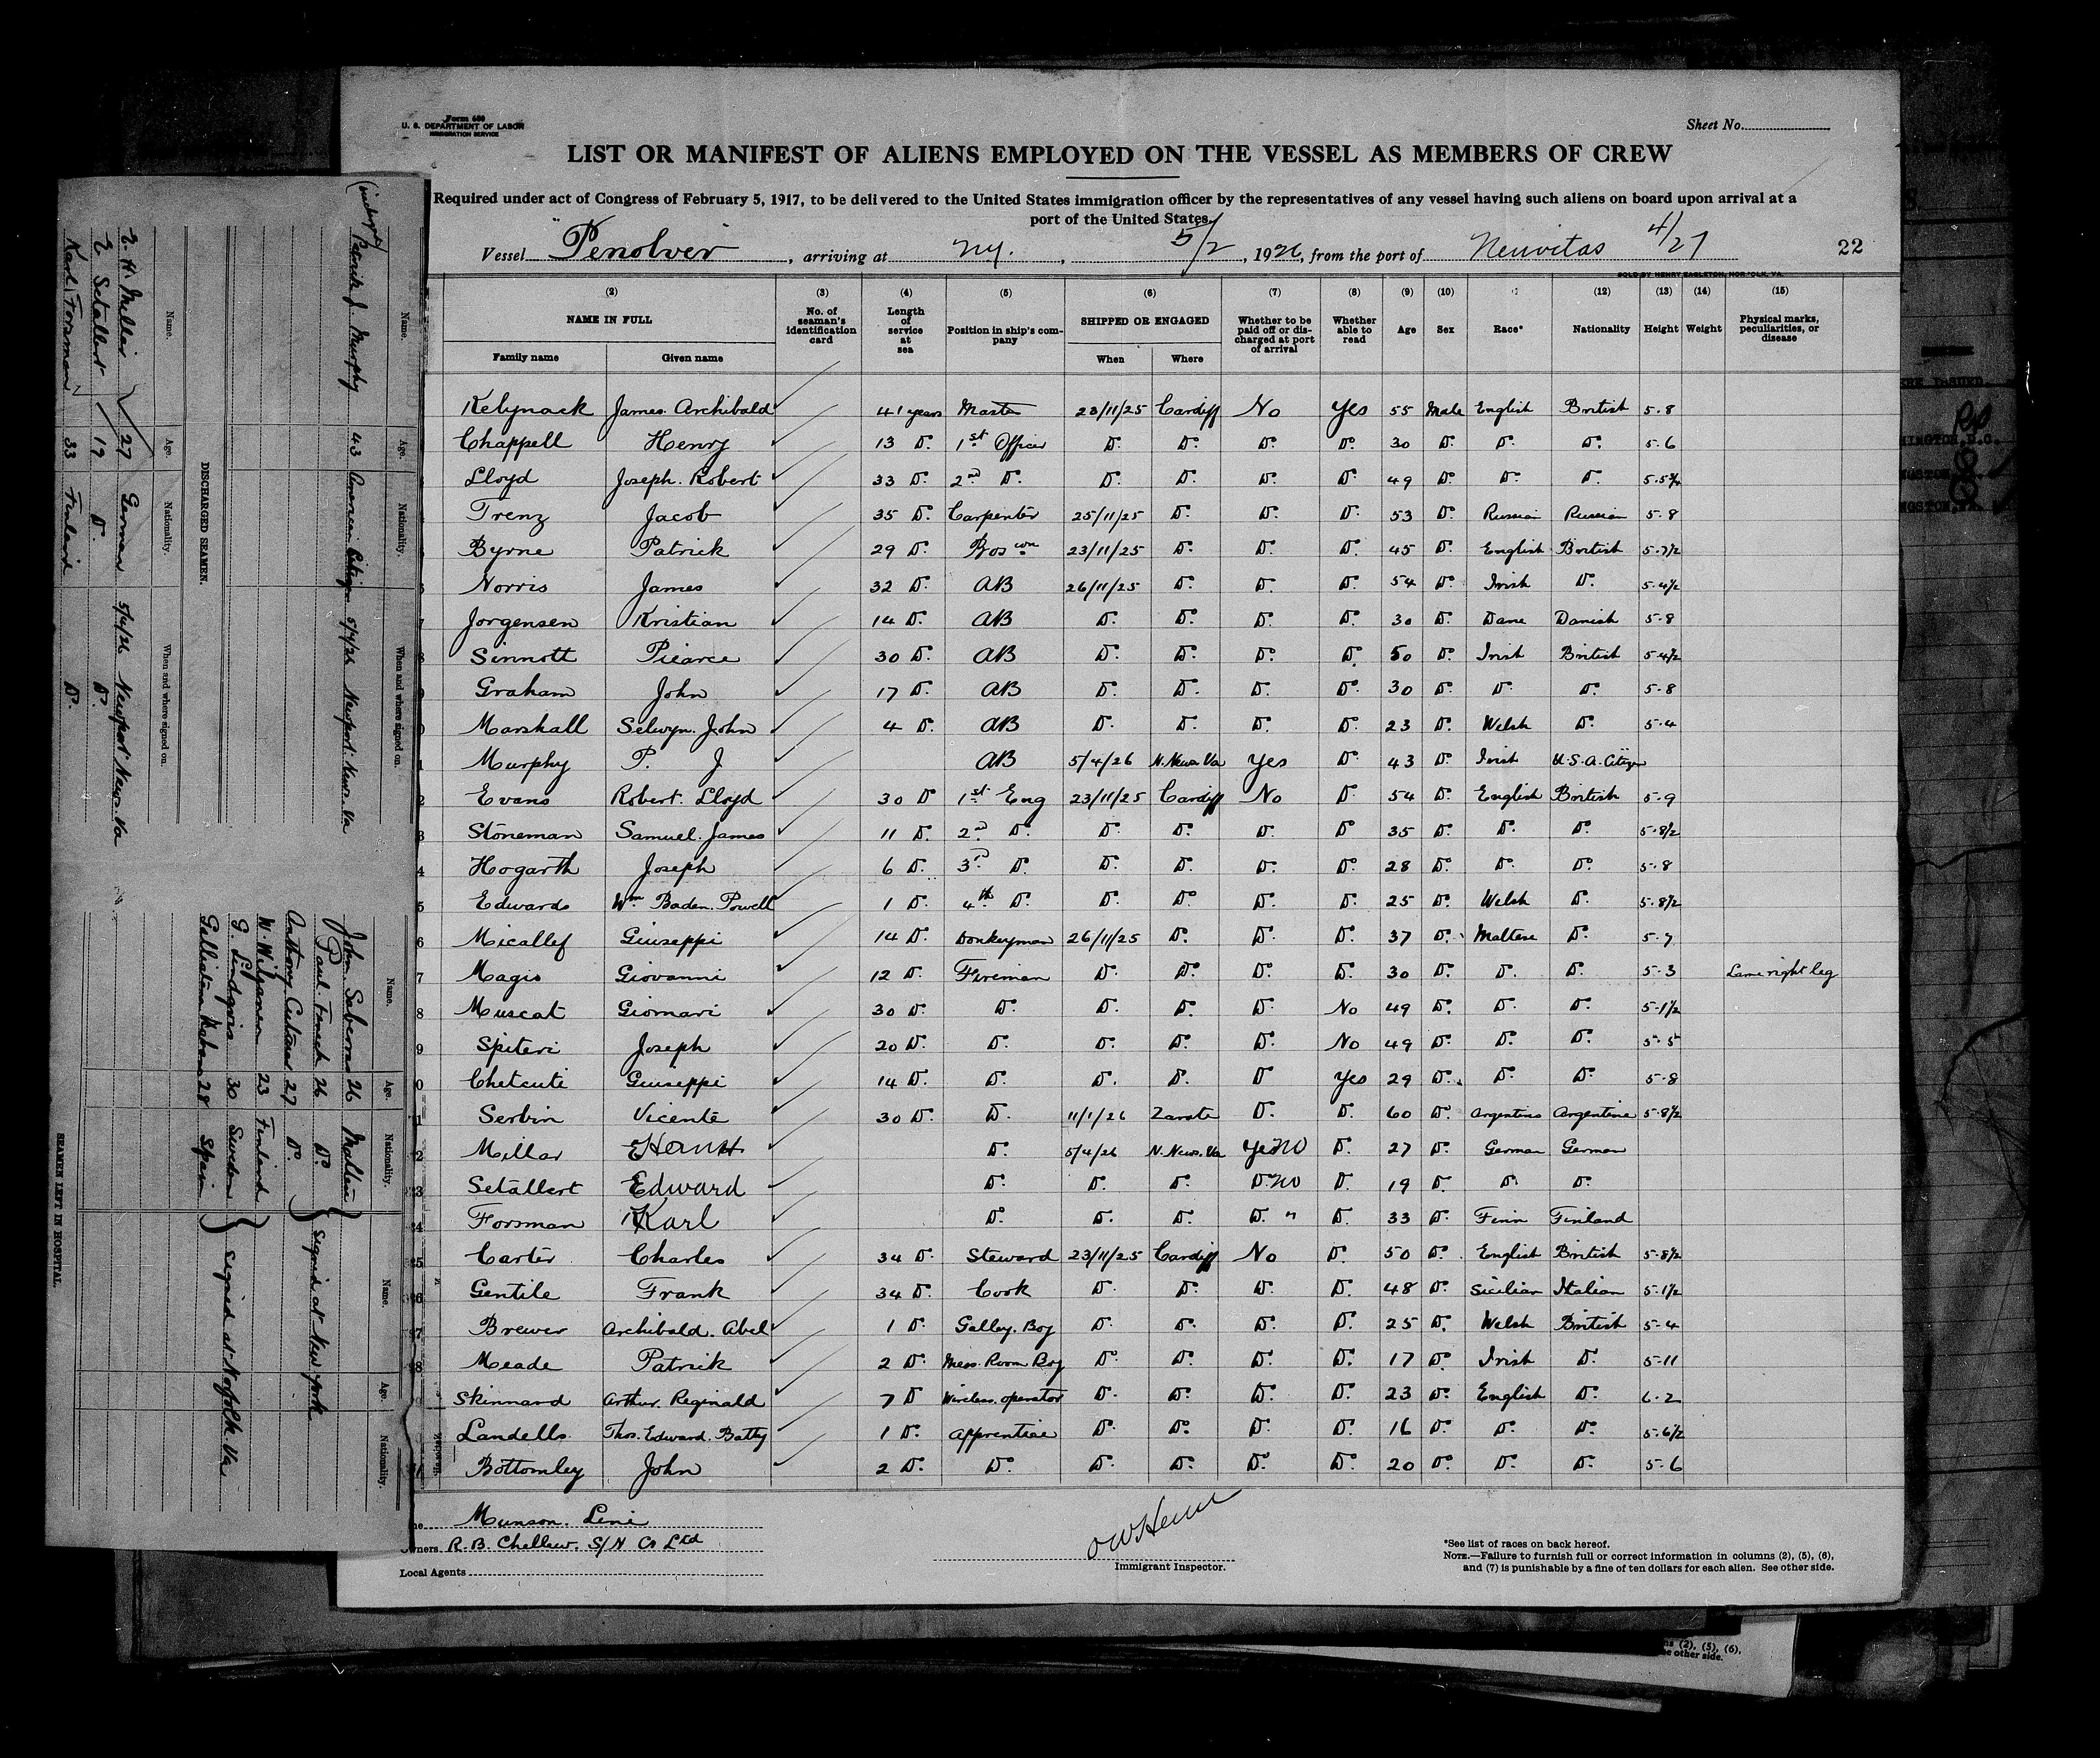 Form 680
U. S. DEPARTMENT OF LABOR
IMMIGRATION SERVICE
Sheet No.
LIST OR MANIFEST OF ALIENS EMPLOYED ON THE VESSEL AS MEMBERS OF CREW
Required under act of Congress of February 5, 1917, to be delivered to the United States immigration officer by the representatives of any vessel having such aliens on board upon arrival at a
port of the United States.
Vessel "Penolver", arriving at N.Y., 5/2, 1926, from the port of Neuvitas 4/27 22
SOLD BY HENRY EAGLETON, NORFOLK, VA.
(2) (3) (4) (5) (6) (7) (8) (9) (10) (12) (13) (14) (15)
NAME IN FULL No. of seaman's identification card Length of service at sea Position in ship's company SHIPPED OR ENGAGED Whether to be paid off or discharged at port of arrival Whether able to read Age Sex Race* Nationality Height Weight Physical marks, peculiarities, or disease
Family name Given name When Where
Kelynack James Archibald 41 years Master 23/11/25 Cardiff No Yes 55 Male English British 5-8
Chappell Henry 13 Do. 1st Officer Do. Do. Do. Do. 30 Do. Do. Do. 5-6
Lloyd Joseph Robert 33 Do. 2nd Do. Do. Do. Do. Do. 49 Do. Do. Do. 5-5¾
Trenz Jacob 35 Do. Carpenter 25/11/25 Do. Do. Do. 53 Do. Russian Russian 5-8
Byrne Patrick 29 Do. Bos'wn 23/11/25 Do. Do. Do. 45 Do. English British 5-7½
Norris James 32 Do. AB 26/11/25 Do. Do. Do. 54 Do. Irish Do. 5-4½
Jorgensen Kristian 14 Do. AB Do. Do. Do. Do. 30 Do. Dane Danish 5-8
Sinnott Piearce 30 Do. AB Do. Do. Do. Do. 50 Do. Irish British 5-4½
Graham John 17 Do. AB Do. Do. Do. Do. 30 Do. Do. Do. 5-8
Marshall Selwyn John 4 Do. AB Do. Do. Do. Do. 23 Do. Welsh Do. 5-4
Murphy P. J AB 5/4/26 N. News. Va Yes Do. 43 Do. Irish U.S.A. Citizen
Evans Robert Lloyd 30 Do 1st Eng 23/11/25 Cardiff No Do. 54 Do. English British 5-9
Stoneman Samuel James 11 Do. 2nd Do. Do. Do. Do. Do 35 Do. Do. Do. 5-8½
Hogarth Joseph 6 Do. 3rd Do. Do. Do. Do. Do. 28 Do. Do. Do. 5-8
Edwards Wm Baden Powell 1 Do. 4th Do. Do. Do. Do. Do. 25 Do. Welsh Do. 5-8½
Micallef Giuseppi 14 Do. Donkeyman 26/11/25 Do. Do. Do. 37 Do. Maltese Do. 5-7
Magis Giovanni 12 Do. Fireman Do. Do. Do. Do. 30 Do. Do. Do. 5-3 Lame right leg
Muscat Giomari 30 Do. Do. Do. Do. Do. No 49 Do. Do. Do. 5-1½
Spiteri Joseph 20 Do. Do. Do. Do. Do. No 49 Do. Do. Do. 5-5
Chetcuti Giuseppi 14 Do. Do. Do. Do. Do Yes 29 Do. Do. Do. 5-8
Serbin Vicente 30 Do. Do. 11/1/26 Zarate Do. Do. 60 Do. Argentino Argentine 5-8½
Millar Do. 5/4/26 N. News. Va Yes No Do. 27 Do. German German
Setallert Edward Do. Do. Do. Do. No Do. 19 Do. Do. Do.
Forsman Karl Do. Do. Do. Do. " Do. 33 Do. Finn Finland
Carter Charles 34 Do. Steward 23/11/25 Cardiff No Do. 50 Do. English British 5-8½
Gentile Frank 34 Do. Cook Do. Do. Do. Do. 48 Do. Sicilian Italian 5-1½
Brewer Archibald Abel 1 Do. Galley Boy Do. Do. Do. Do. 25 Do. Welsh British 5-4
Meade Patrick 2 Do. Mess Room Boy Do. Do. Do. Do. 17 Do. Irish Do. 5-11
Skinnard Arthur Reginald 7 Do Wireless operator Do. Do. Do. Do. 23 Do. English Do. 6-2
Landells Thos. Edward Batty 1 Do. Apprentice Do. Do. Do. Do. 16 Do. Do. Do. 5-6½
Bottomley John 2 Do. Do. Do. Do. Do. Do. 20 Do. Do. Do. 5-6
Munson Line
Owners R. B. Chellew S/N Co Ltd
Local Agents
Immigrant Inspector.
*See list of races on back hereof.
NOTE.—Failure to furnish full or correct information in columns (2), (5), (6),
and (7) is punishable by a fine of ten dollars for each alien. See other side.
Name. Age. Nationality. When and where signed on.
Patrick J. Murphy 43 American Citizen 5/4/26 Newport News. Va
DISCHARGED SEAMEN.
Name. Age. Nationality. When and where signed on.
E. H. Meller 27 German 5/4/26 Newport News. Va
E Setallert 19 Do. Do.
Karl Forsman 33 Finland Do.
Name. Age. Nationality. Name. Age. Nationality.
26
Paul 26 Do. Signed at New York
Anthony 27 Do.
23 Finland
30 Sweden Signed at Norfolk Va
28 Spain
SEAMEN LEFT IN HOSPITAL.